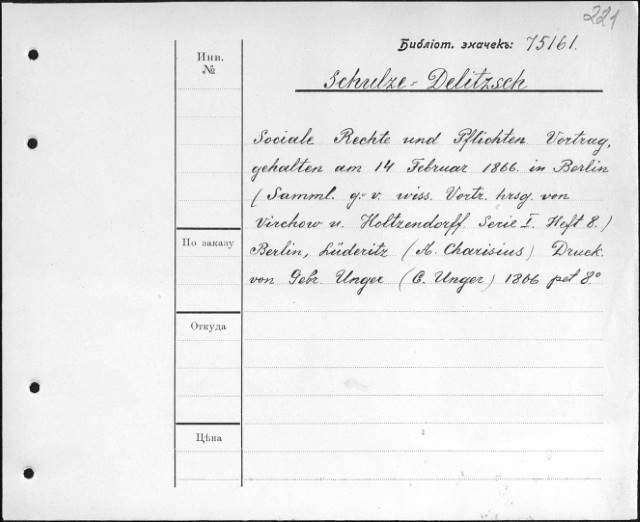 221
Библіот. значекъ: 75161.
Инв.
№
Schulze-Delitzsch
Sociale Rechte und Pflichten Vortrag,
gehalten am 14 Februar 1866. in Berlin
(Samml. g. v. wiss. Vortr. hrsg. von
Virchow u. Holtzendorff. Serie I. Heft 8.)
По заказу
Berlin, Lüderitz (A. Charisius) Druck.
von Gebr. Unger (E. Unger) 1806 pet 8.°
Откуда
Цѣна